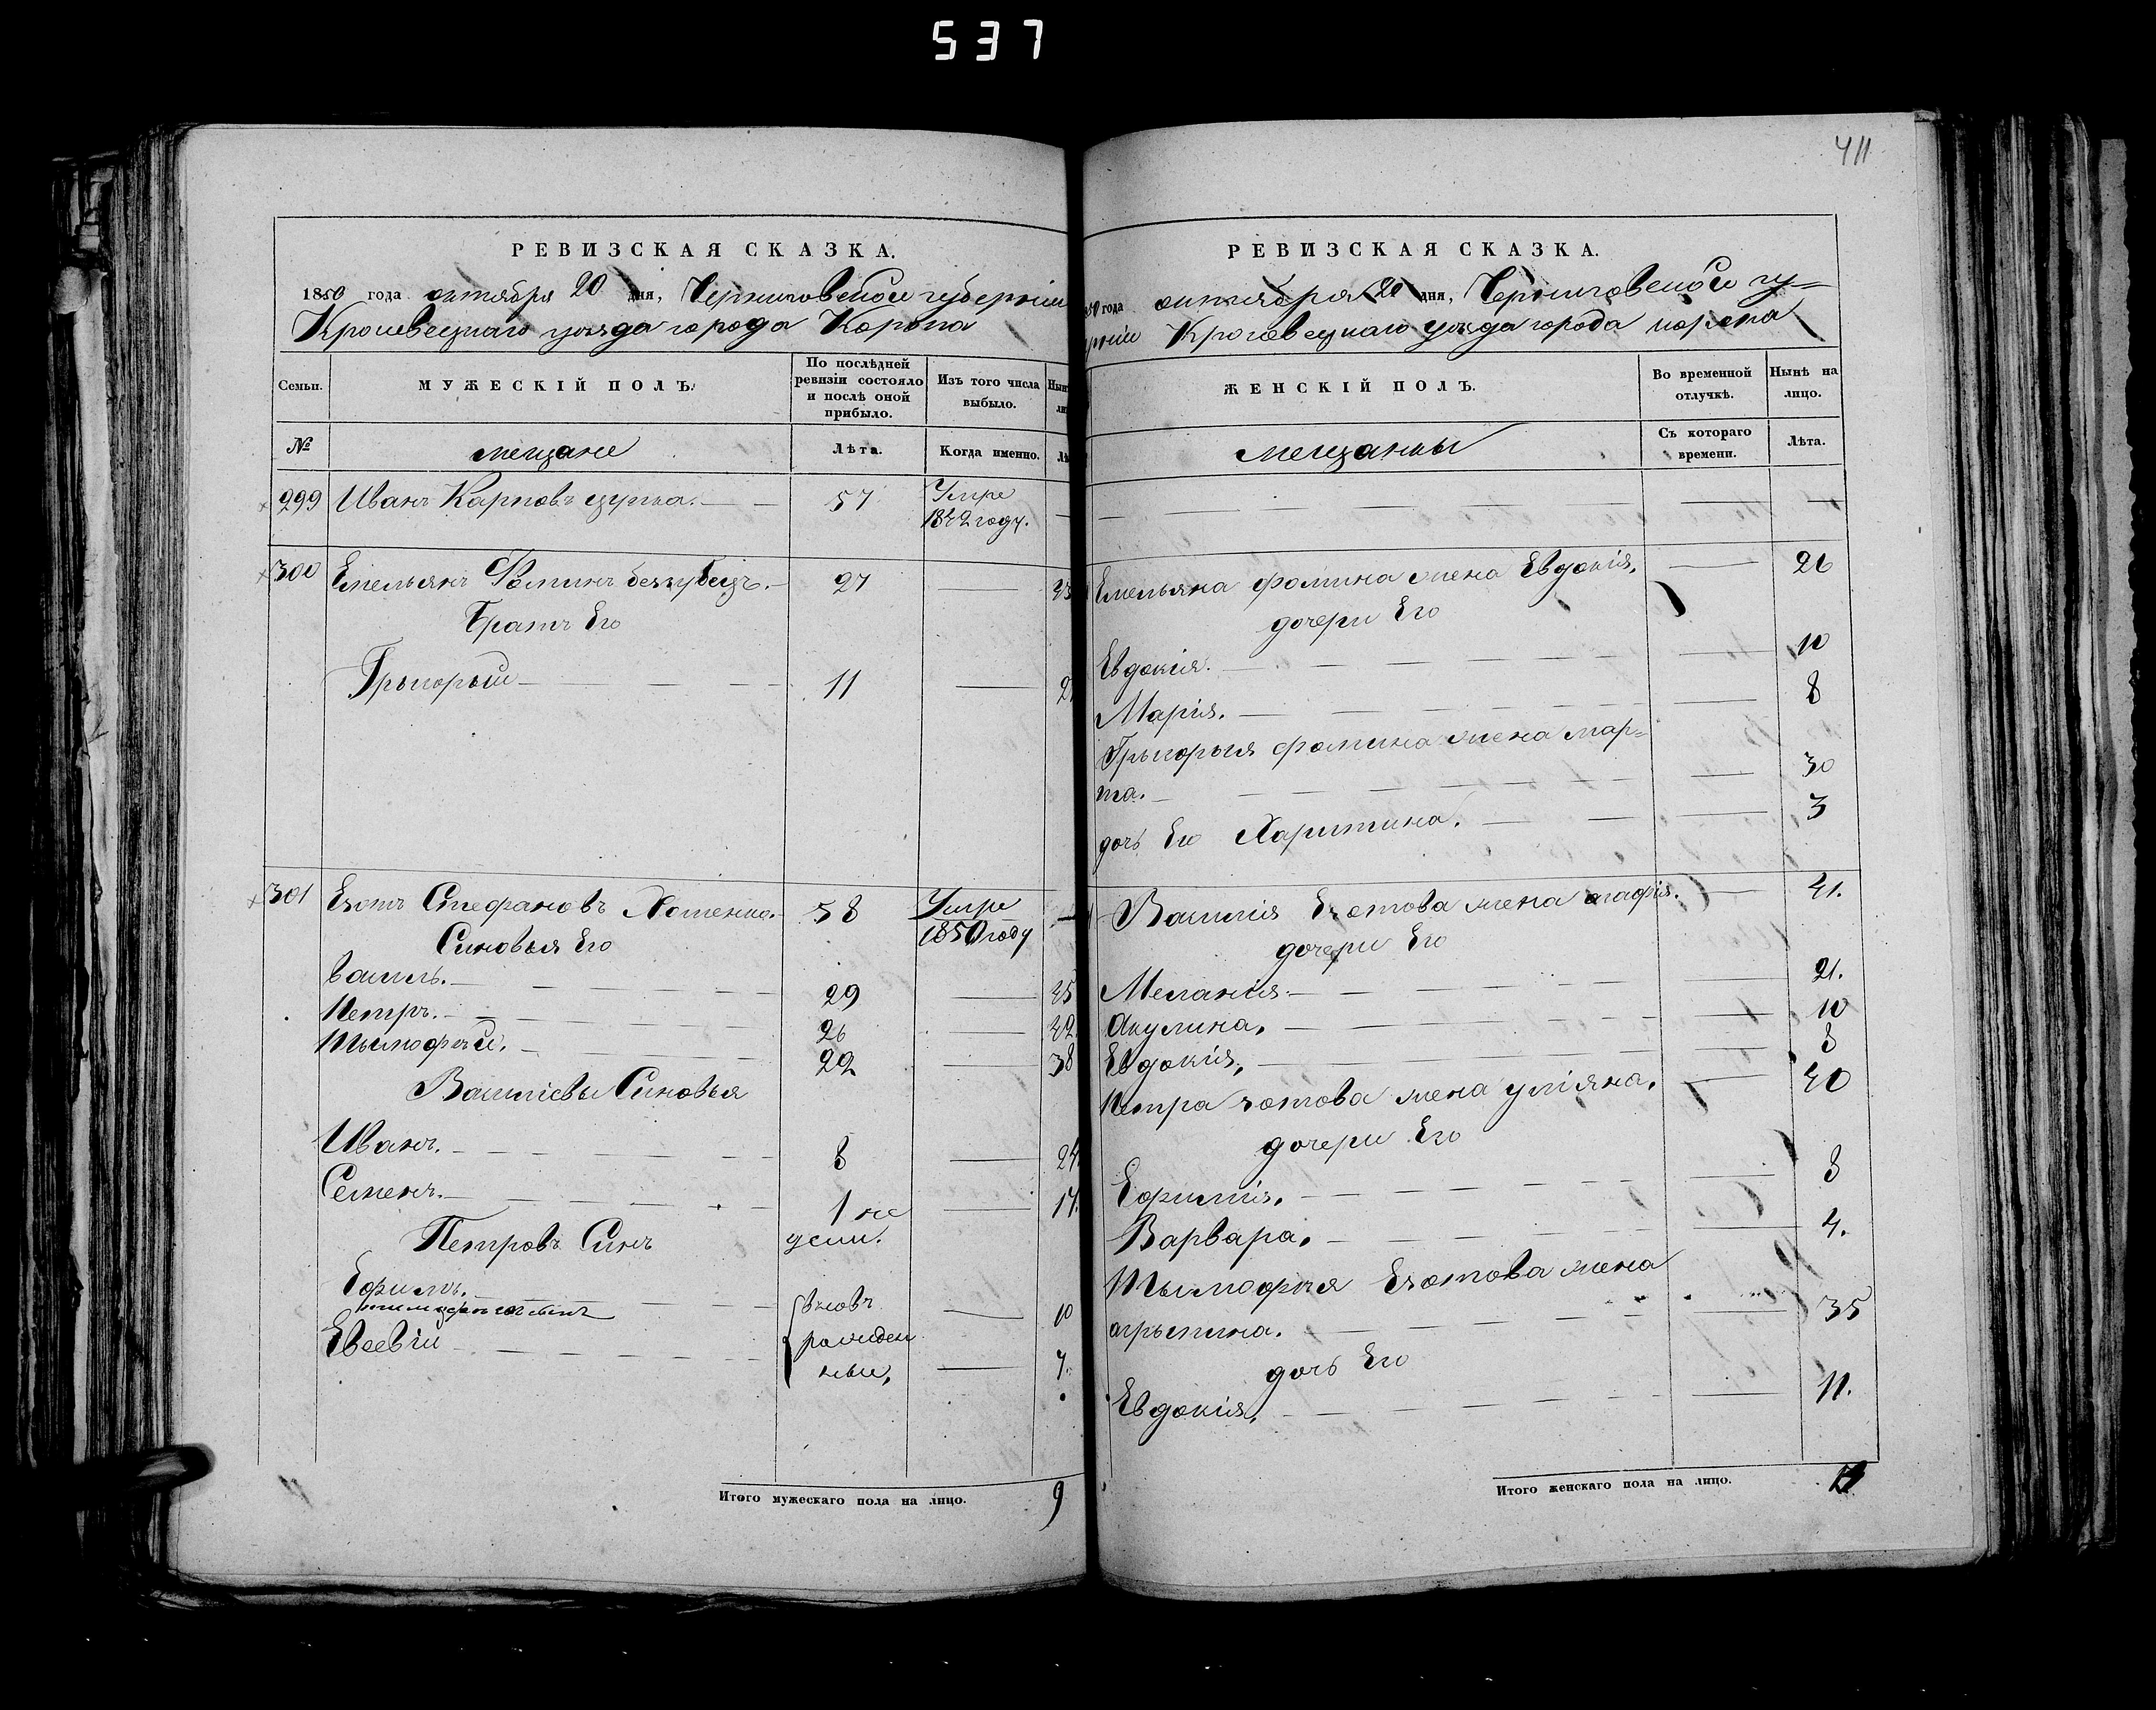 537
411
РЕВИЗСКАЯ СКАЗКА.
1850 года октября 20 дня, Черниговской губерніи
Кролевецкаго уезда города Коропа
Семьи.
МУЖЕСКІЙ ПОЛЪ.
По послѣдней ревизіи состояло и послѣ оной прибыло.
Изъ того числа выбыло.
№
мещане
Лѣта.
Когда именно.
299 Иванъ Карповъ 57 Умре
1842 году.
300 Емельянъ Фоминъ беззубець. 27
Братъ Его
Грыгорый 11
301 Стефановъ Хоменко. 58 Умре
1850 году
Синовья Его
Василь. 29 45
Петръ. 26 42
Тымофей. 22 38
Василіевы Синовья
Иванъ. 8 24
Семенъ. 1 не 17.
дели.
Петровъ Синъ
Ефимъ. вновь 10
Евсевій рожден
ные,
Итого мужескаго пола на лицо. 9
РЕВИЗСКАЯ СКАЗКА.
года октября 20 дня, Черниговской гу=
Кролевецкаго уезда города коропа
ЖЕНСКІЙ ПОЛЪ.
Во временной отлучкѣ.
Нынѣ на лицо.
мещанки
Съ котораго времени.
Лѣта.
Емельяна фомина жена Евдокія, 26
дочери Его
Евдокія. 10
Марія. 8
Грыгорыя фомина жена мар=
та. 30
дочь Его Харитина. 3
Василія жена агафія. 41.
дочери Его
Меланія. 21.
Акулина, 10
Евдокія, 8
Петра жена уліяна, 40
дочери Его
Ефимія, 8
Варвара, 4.
Тымофея жена
агрыпина. 35
дочь Его
Евдокія, 11.
Итого женскаго пола на лицо.